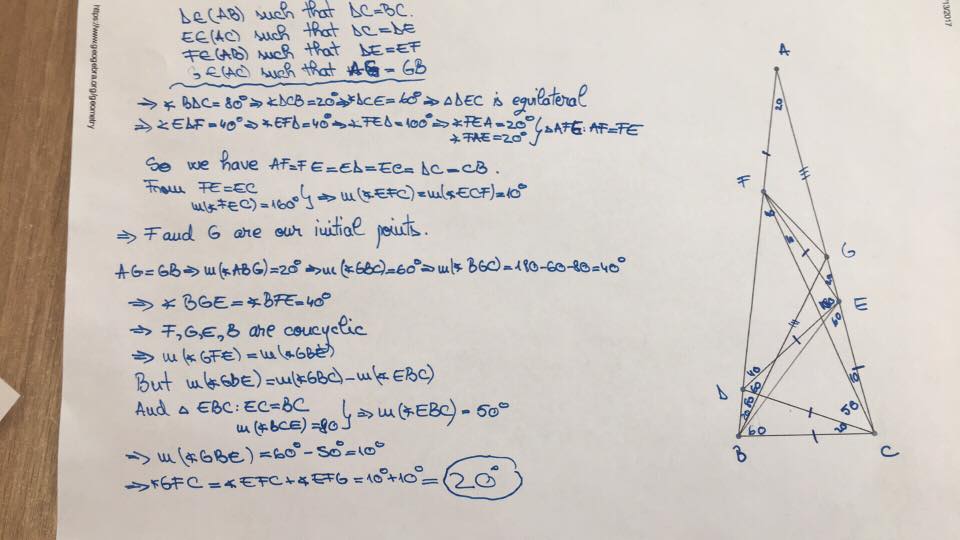 D∈(AB) such that DC=BC.
E∈(AC) such that DC=DE
F∈(AB) such that DE=EF
G∈(AC) such that AG=GB
⇒ ∢BDC=80°⇒∢DCB=20°⇒∢DCE=60°⇒△DEC is equilateral
⇒ ∢EDF=40°⇒∢EFD=40°⇒∢FED=100°⇒∢FEA=20°
∢FAE=20° } △AFE: AF=FE
So we have AF=FE=ED=EC=DC=CB.
From FE=EC
m(∢FEC)=160° } ⇒ m(∢EFC)=m(∢ECF)=10°
⇒ F and G are our initial points.
AG=GB⇒m(∢ABG)=20°⇒m(∢GBC)=60°⇒m(∢BGC)=180-60-80=40°
⇒ ∢BGE=∢BFE=40°
⇒ F,G,E,B are concyclic
⇒ m(∢GFE)=m(∢GBE)
But m(∢GBE)=m(∢GBC)-m(∢EBC)
And △EBC: EC=BC
m(∢BCE)=80 } ⇒ m(∢EBC)=50°
⇒ m(∢GBE)=60°-50°=10°
⇒ ∢GFC=∢EFC+∢EFG=10°+10°=20°
https://www.geogebra.org/geometry
13/2017
A
20
F
G
20
E
60
D
40
60
80
20
60
B
10
50
20
C